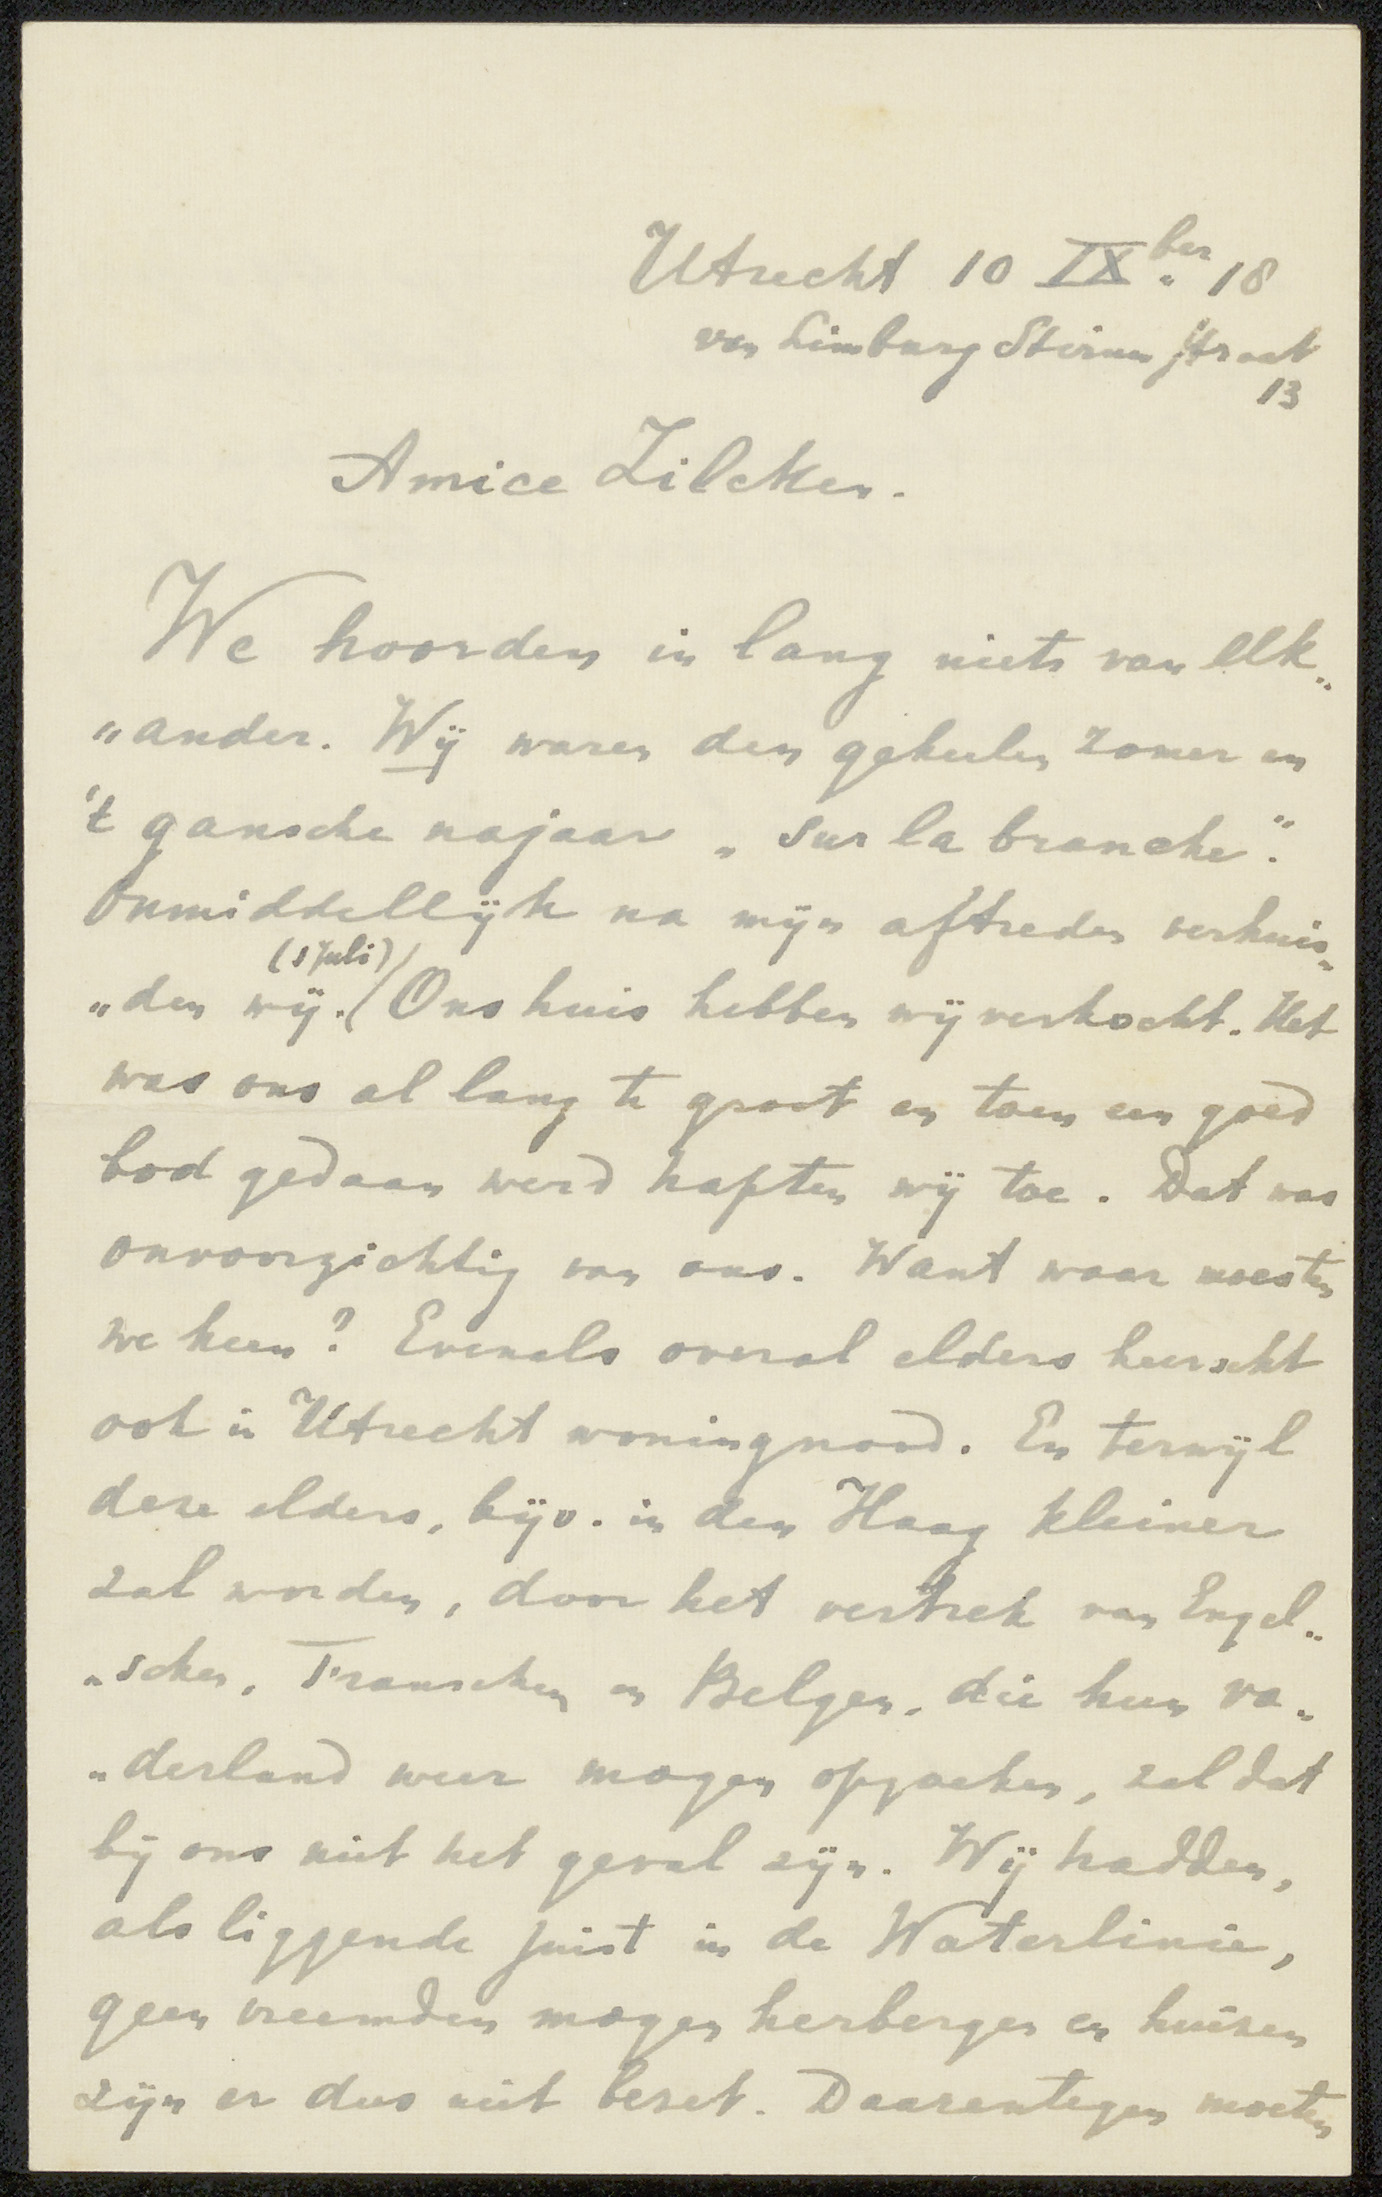 Utrecht 10 IXber. 18
van Limburg Stirum straat
13
Amice Zilcken.
We hoorden in lang niets van elk„
„ander. Wij waren den geheelen zomer en
't gansche najaar „sur la branche".
Onmiddellijk na mijn aftreden verhuis„
(1 Juli)
„den wij. Ons huis hebben wij verkocht. Het
was ons al lang te groot en toen een goed
bod gedaan werd hapten wij toe. Dat was
onvoorzichtig van ons. Want waar moesten
we heen? Evenals overal elders heerscht
ook in Utrecht woningnood. En terwijl
deze elders, bijv. in den Haag kleiner
zal worden, door het vertrek van Engel„
„schen, Franschen en Belgen, die hun va„
„derland weer mogen opzoeken, zal dat
bij ons niet het geval zijn. Wij hadden,
als liggende juist in de Waterlinie,
geen vreemden mogen herbergen en huizen
zijn er dus niet bezet. Daarentegen moeten